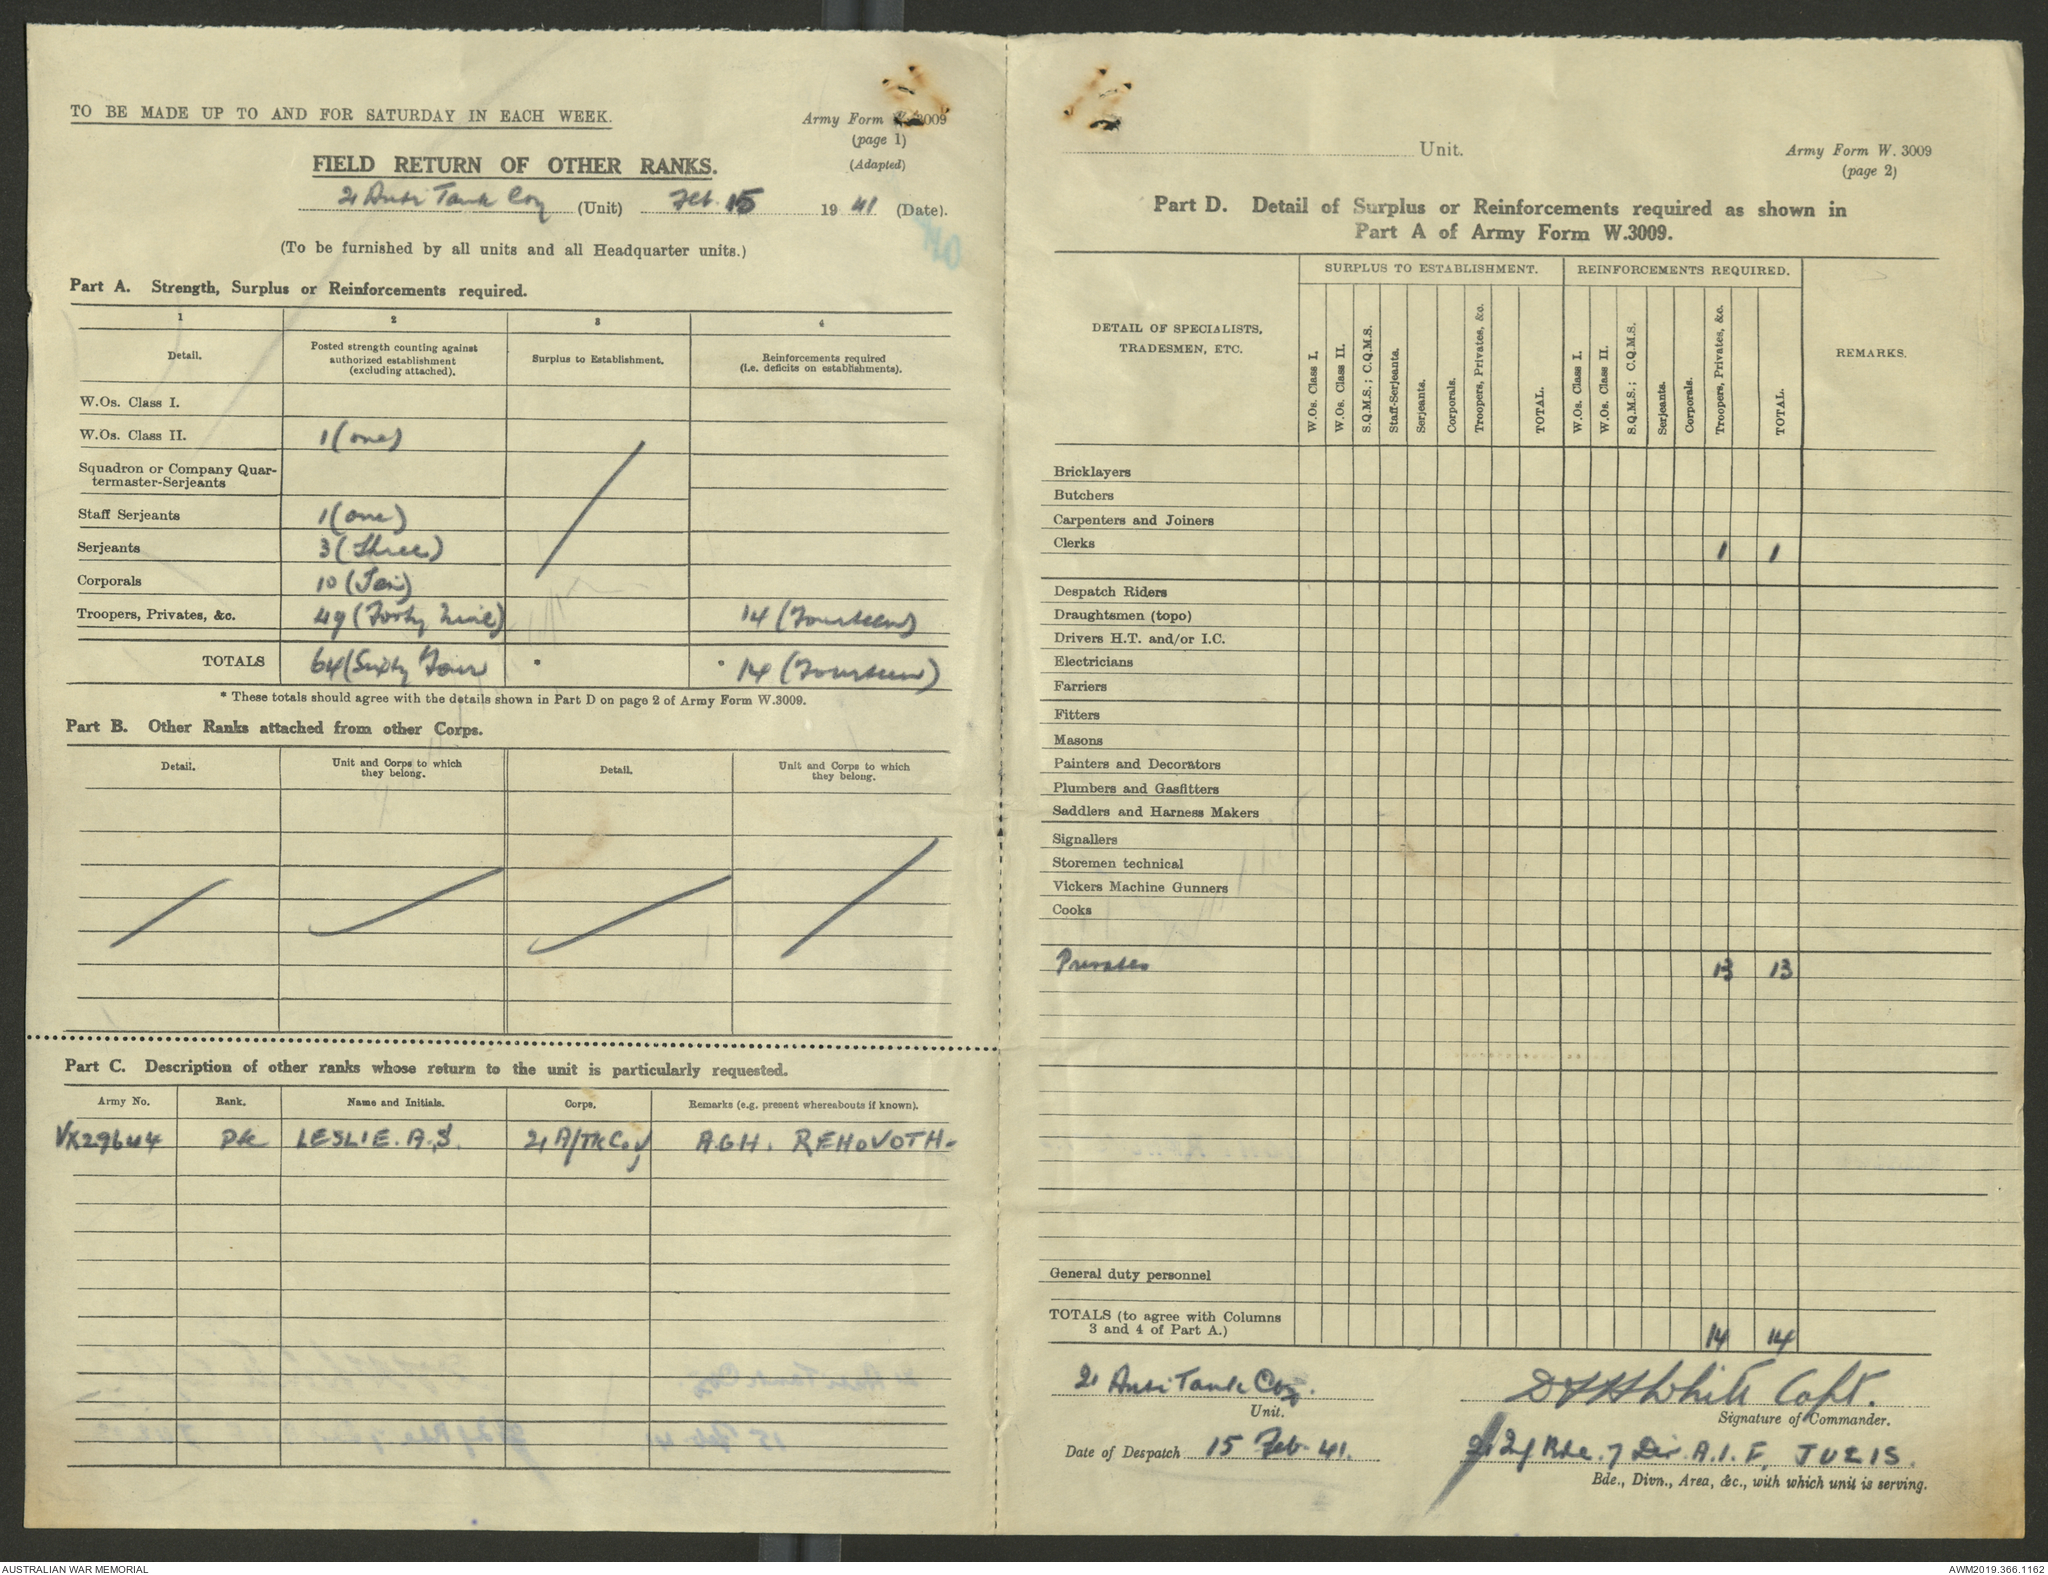 TO BE MADE UP TO AND FOR SATURDAY IN EACH WEEK.
Army Form W. 3009
(page 1)
(Adapted)
FIELD RETURN OF OTHER RANKS.
21 Anti Tank Coy (Unit) Feb. 15 1941 (Date).
(To be furnished by all units and all Headquarter units.)
Part A. Strength, Surplus or Reinforcements required.
1 2 3 4
Detail. Posted strength counting against authorized establishment (excluding attached). Surplus to Establishment. Reinforcements required (i.e. deficits on establishments).
W.Os. Class I.
W.Os. Class II. 1 (one)
Squadron or Company Quar-
termaster-Serjeants
Staff Serjeants 1 (one)
Serjeants 3 (Three)
Corporals 10 (Ten)
Troopers, Privates, &c. 49 (Forty Nine) 14 (Fourteen)
TOTALS 64 (Sixty Four * * 14 (Fourteen)
* These totals should agree with the details shown in Part D on page 2 of Army Form W.3009.
Part B. Other Ranks attached from other Corps.
Detail. Unit and Corps to which they belong. Detail. Unit and Corps to which they belong.
Part C. Description of other ranks whose return to the unit is particularly requested.
Army No. Rank. Name and Initials. Corps. Remarks (e.g. present whereabouts if known).
VX29644 Pte LESLIE. A.S. 21 A/TK Coy A.G.H. REHOVOTH-
Unit.
Army Form W. 3009
(page 2)
Part D. Detail of Surplus or Reinforcements required as shown in
Part A of Army Form W.3009.
DETAIL OF SPECIALISTS, TRADESMEN, ETC. SURPLUS TO ESTABLISHMENT. REINFORCEMENTS REQUIRED. REMARKS.
W.Os. Class I. W.Os. Class II. S.Q.M.S.; C.Q.M.S. Staff-Serjeants. Serjeants. Corporals. Troopers, Privates, &c. TOTAL. W.Os. Class I. W.Os. Class II. S.Q.M.S.; C.Q.M.S. Serjeants. Corporals. Troopers, Privates, &c. TOTAL.
Bricklayers
Butchers
Carpenters and Joiners
Clerks 1 1
Despatch Riders
Draughtsmen (topo)
Drivers H.T. and/or I.C.
Electricians
Farriers
Fitters
Masons
Painters and Decorators
Plumbers and Gasfitters
Saddlers and Harness Makers
Signallers
Storemen technical
Vickers Machine Gunners
Cooks
Privates 13 13
General duty personnel
TOTALS (to agree with Columns
3 and 4 of Part A.) 14 14
21 Anti Tank Coy.
Unit.
D H White Capt.
Signature of Commander.
Date of Despatch 15 Feb. 41.
21 Bde. 7 Div. A.I.F. JULIS.
Bde., Divn., Area, &c., with which unit is serving.
AUSTRALIAN WAR MEMORIAL
AWM2019.366.1162